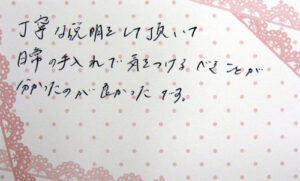 丁寧な説明をして頂いて
日常の手入れで気をつけるべきことが
分かったのが良かったです。